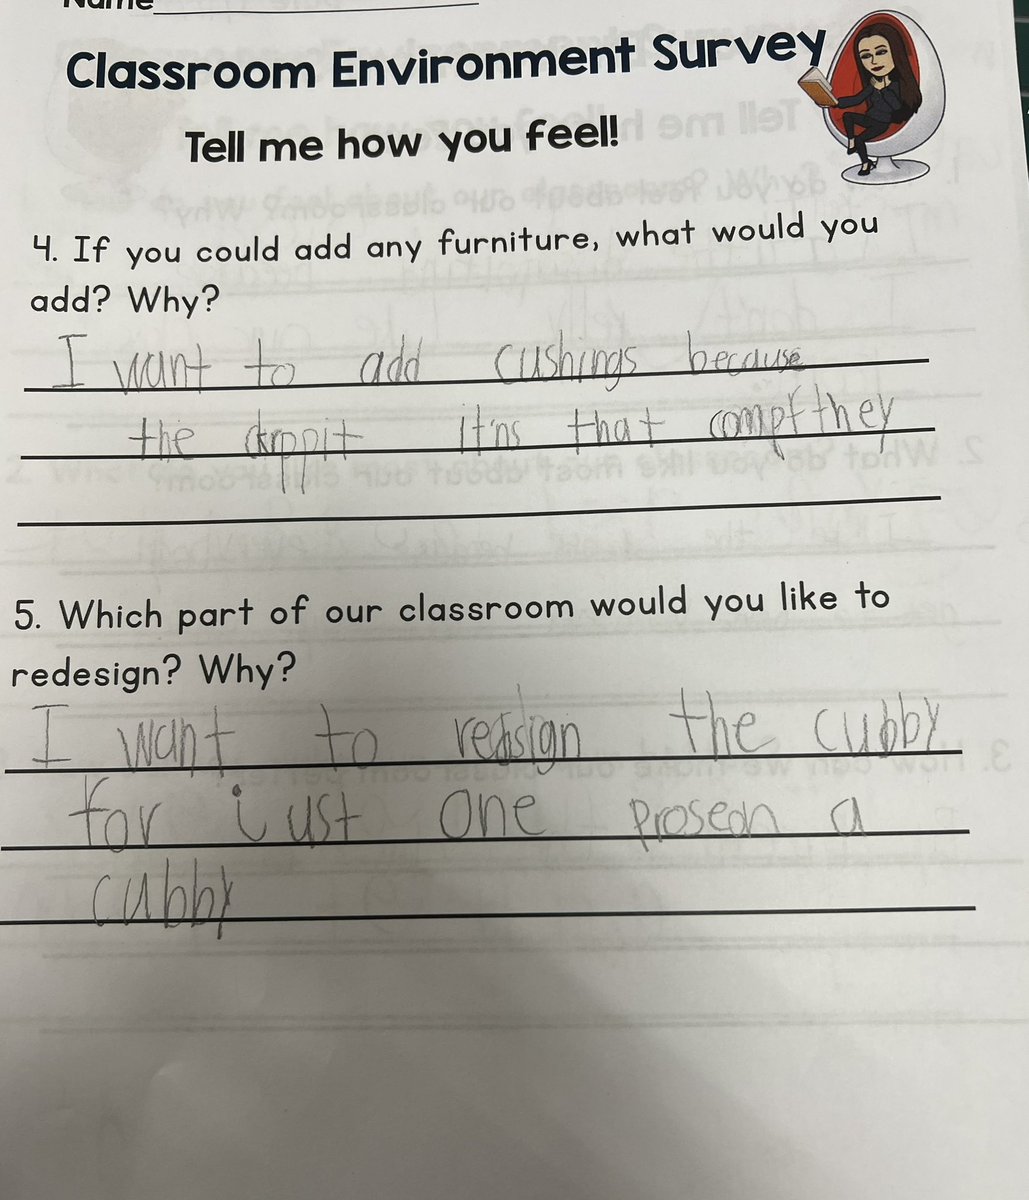 Name
Classroom Environment Survey
Tell me how you feel!
4. If you could add any furniture, what would you
add? Why?
I want to add cushings because
the it'ns that compfthey
5. Which part of our classroom would you like to
redesign? Why?
I want to redsign the cubby
for just one proseon a
cubby